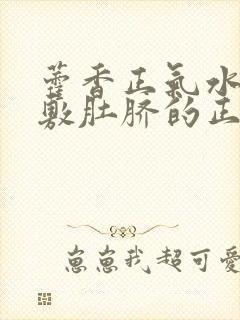 藿香正氣水
敷肚脐的正
崽崽我超可愛